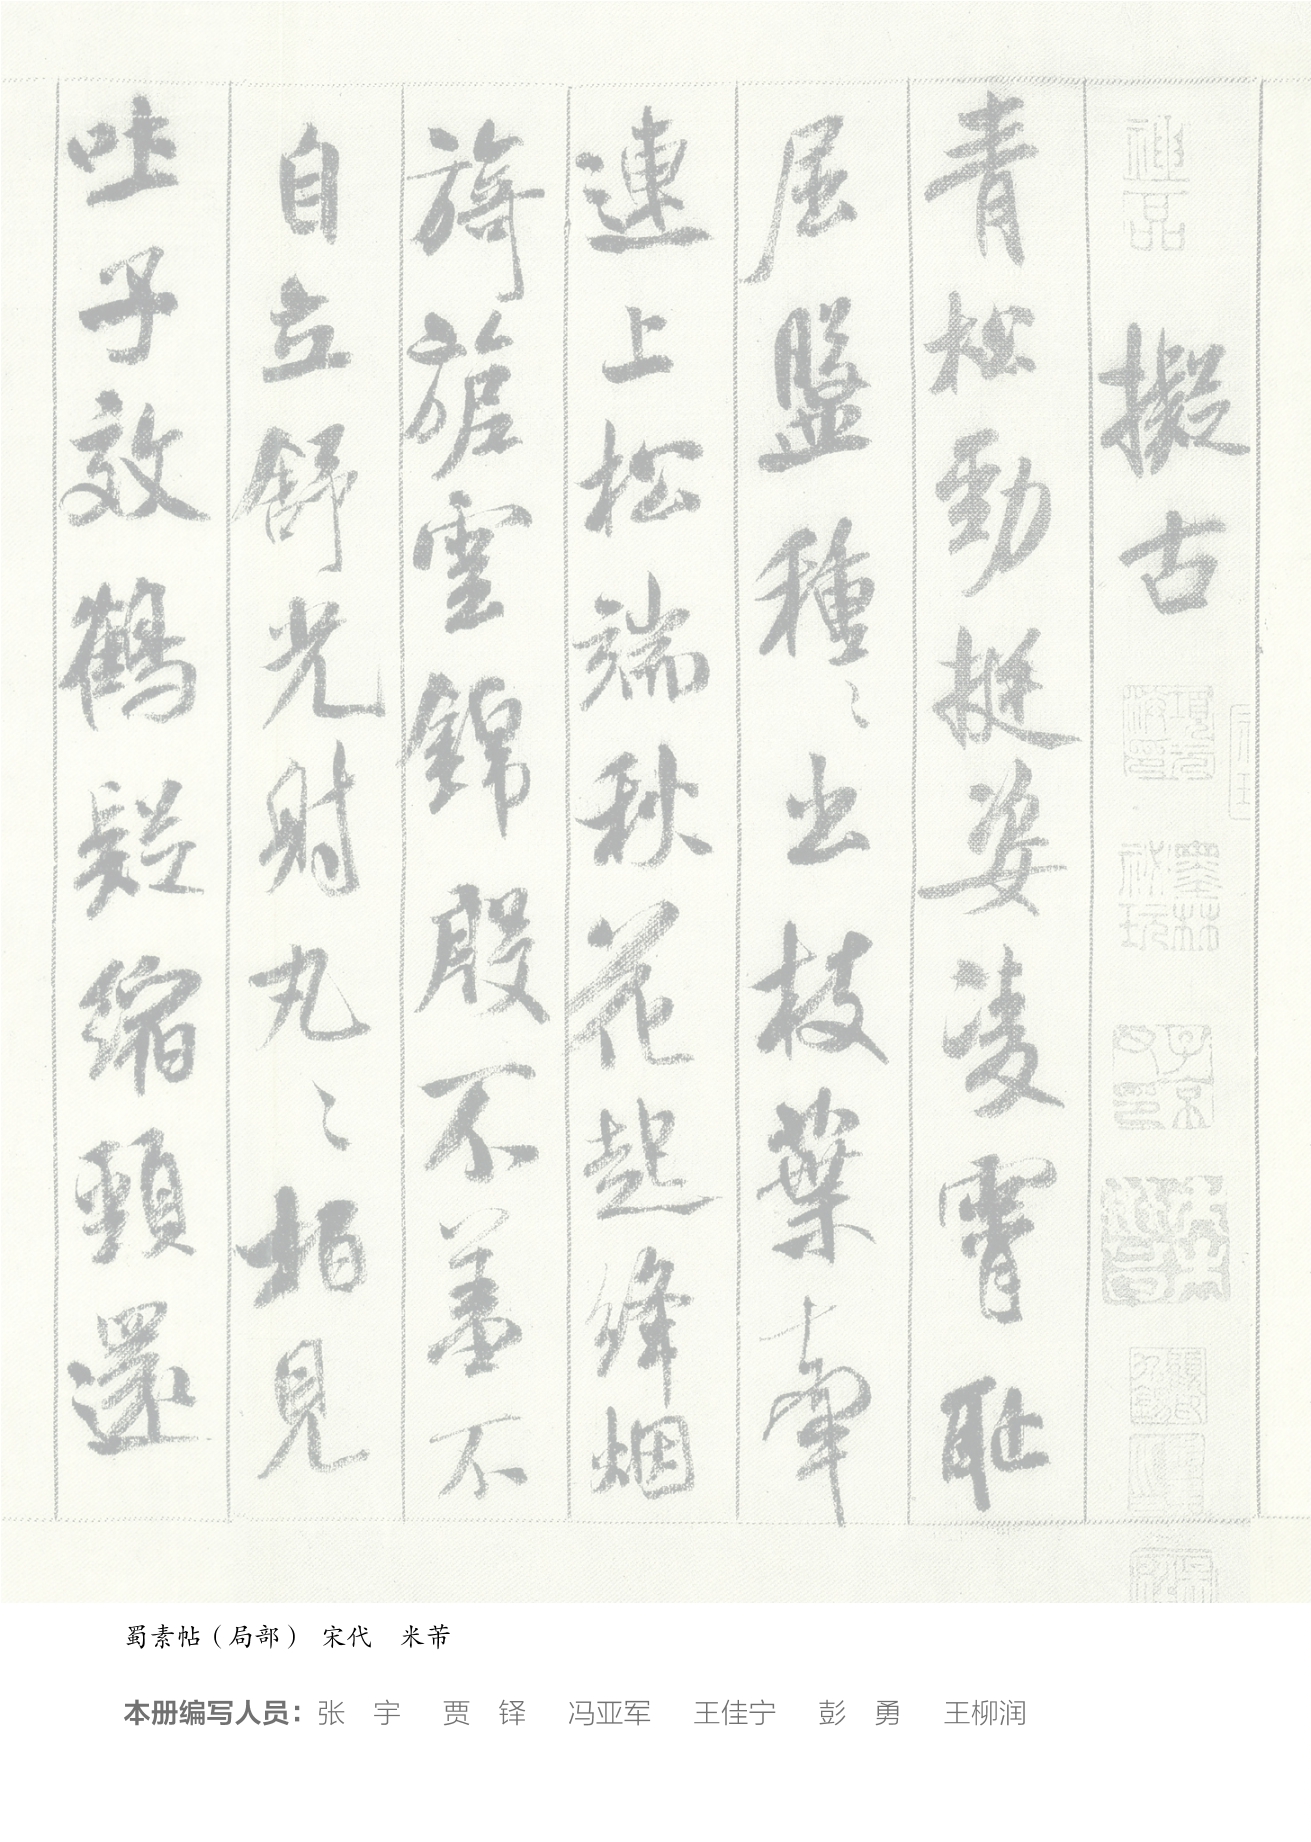 擬古
青松勁挺姿凌霄恥
屈盤種〻出枝葉牽
連上松端秋花起絳烟
旖旎雲錦殷不羞不
自立舒光射丸〻柏見
吐子效鶴疑縮頸還
神品
墨林祕玩
子京父印
蜀素帖（局部） 宋代 米芾
本册编写人员：张 宇 贾 铎 冯亚军 王佳宁 彭 勇 王柳润